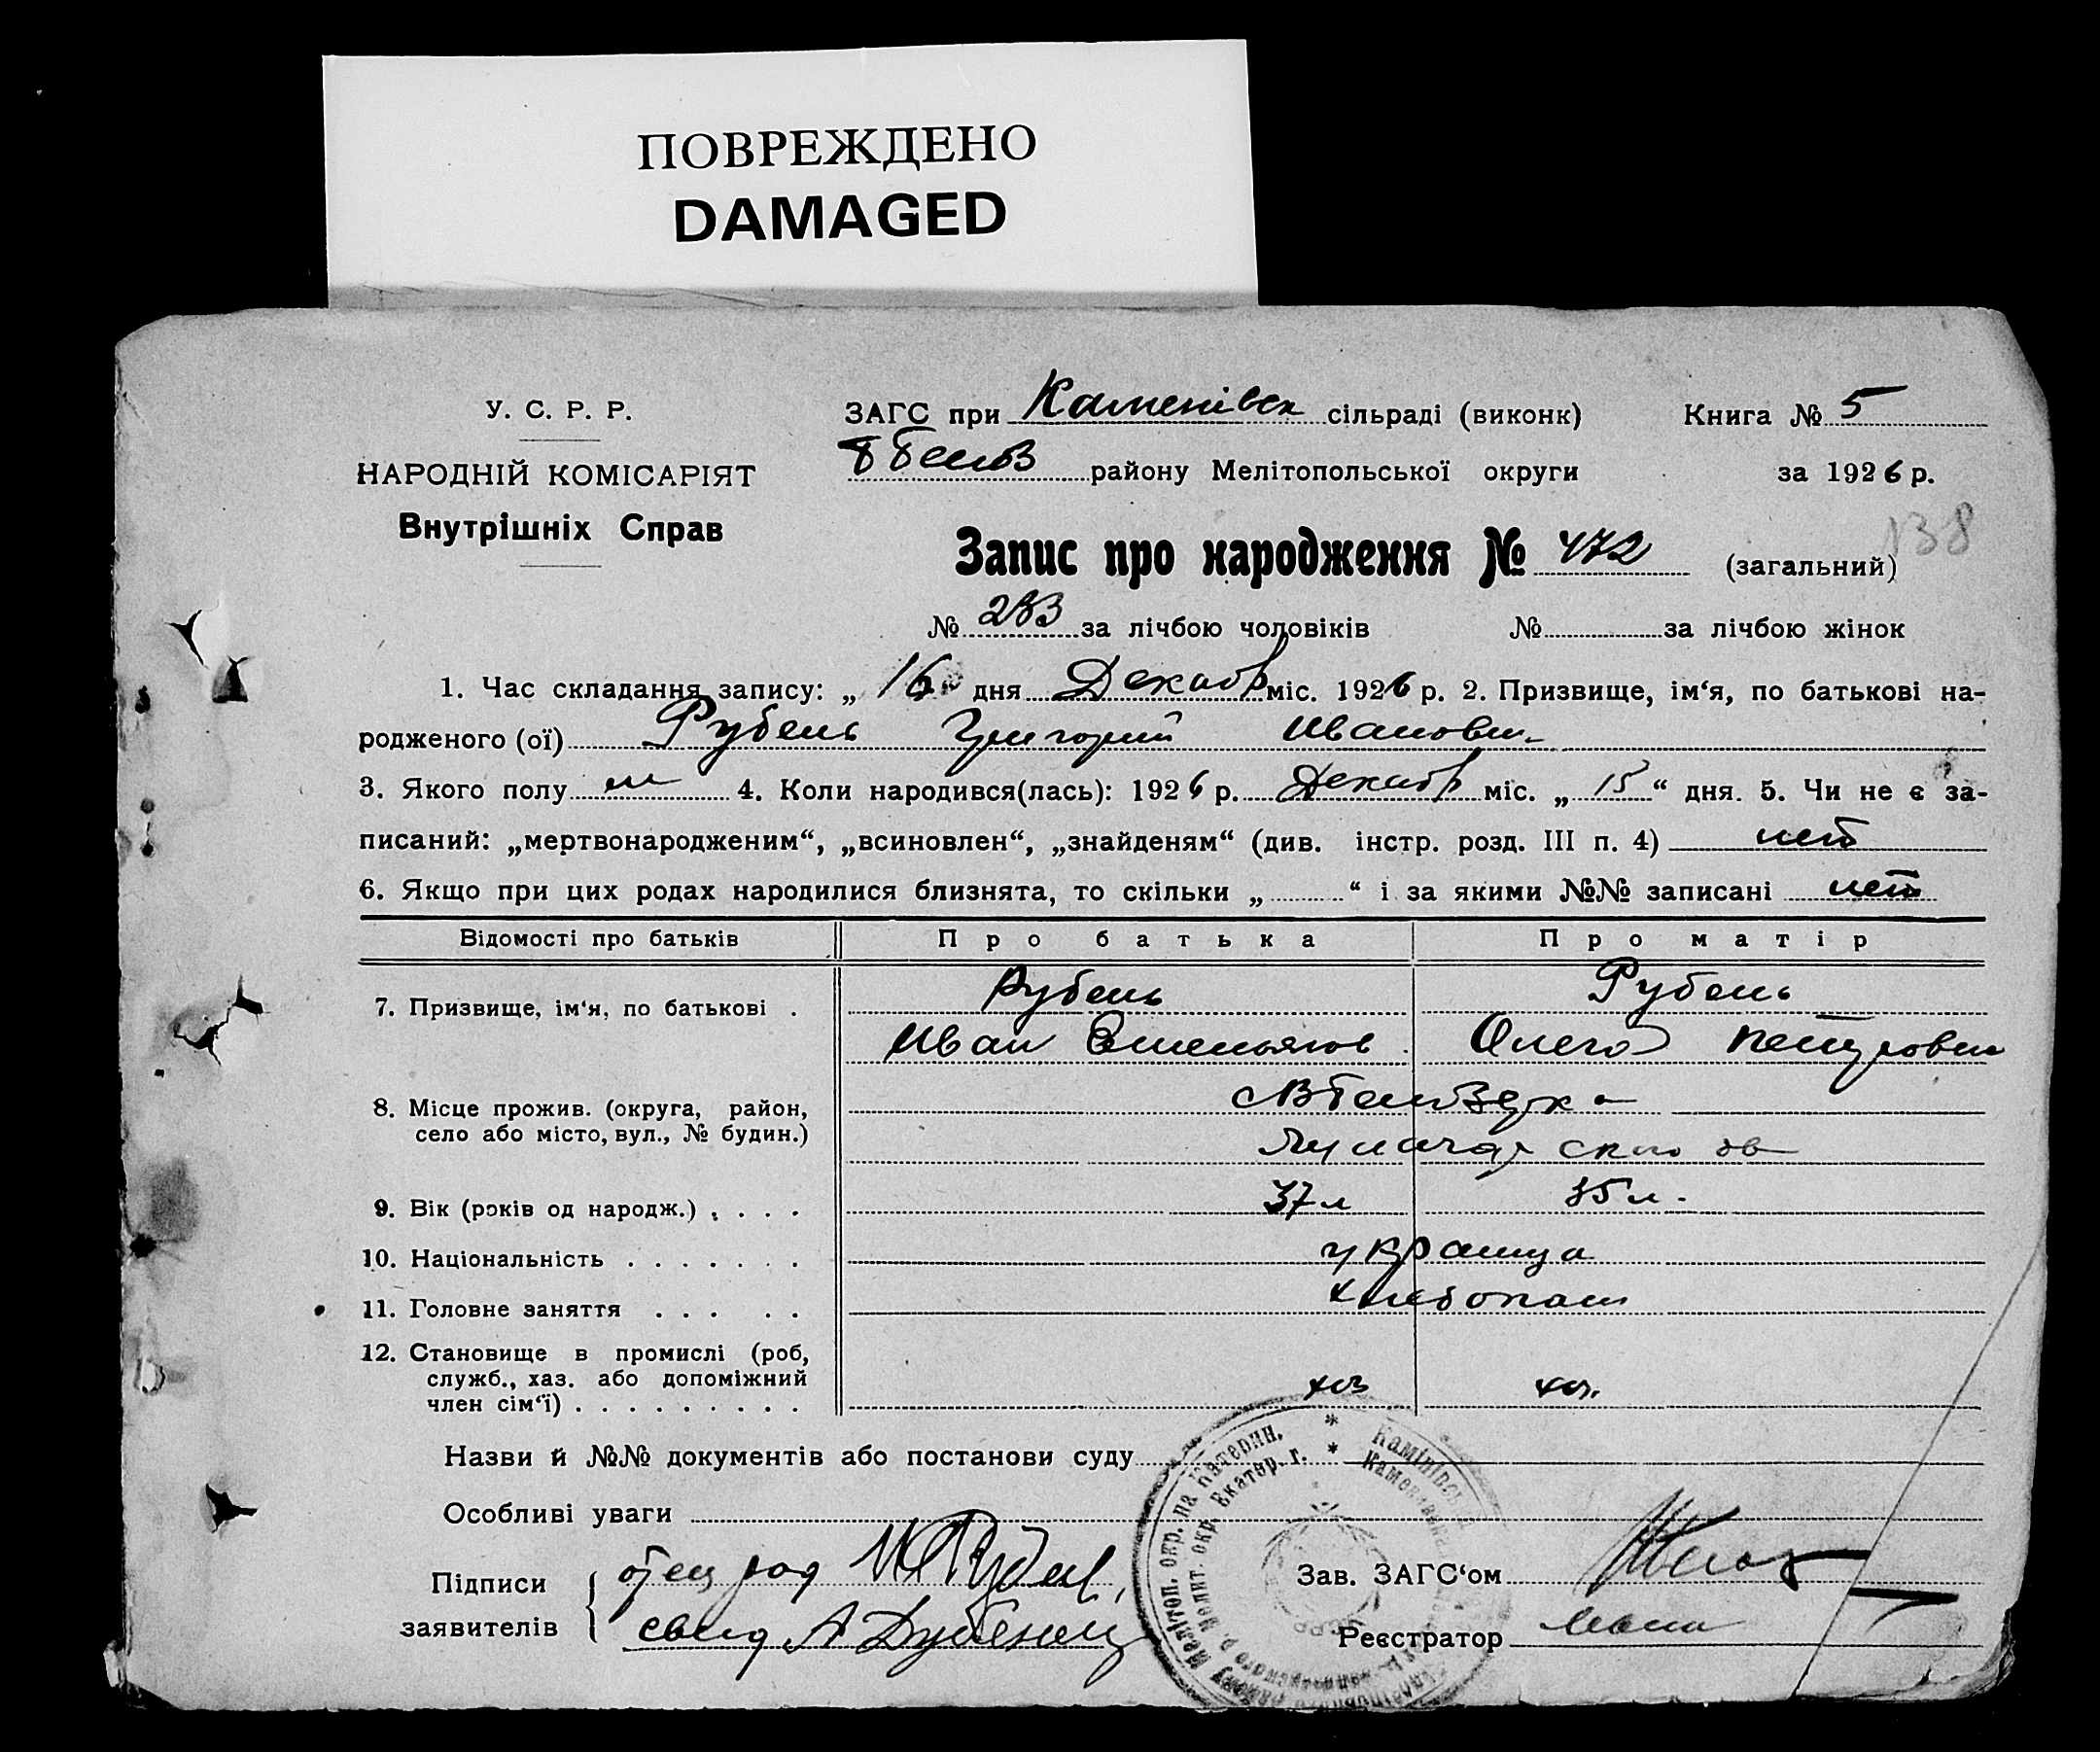 ПОВРЕЖДЕНО
DAMAGED
У. С. Р. Р.
НАРОДНІЙ КОМІСАРІЯТ
Внутрішніх Справ
ЗАГС при Каменівск сільраді (виконк) Книга № 5
району Мелітопольської округи за 1926 р.
138
Запис про народження № 472 (загальний)
№ 283 за лічбою чоловіків № за лічбою жінок
1. Час складання запису: „ 16 дня Декабр міс. 1926 р. 2. Призвище, ім‘я, по батькові на-
родженого (ої) Рубель Григорий Иванович
3. Якого полу м 4. Коли народився(лась): 1926 р. Декабр міс. „ 15 “ дня. 5. Чи не є за-
писаний: „мертвонародженим“, „всиновлен“, „знайденям“ (див. інстр. розд. III п. 4) нет
6. Якщо при цих родах народилися близнята, то скільки „ “ і за якими №№ записані нет
Відомості про батьків Про батька Про матір
7. Призвище, ім‘я, по батькові . Рубель Рубель
Иван Емельянов Петровн
8. Місце прожив. (округа, район,
село або місто, вул., № будин.)
9. Вік (років од народж.) . . . . 37 л 35 л.
10. Національність . . . . . . . украинца
11. Головне заняття . . . . . хлебопаш
12. Становище в промислі (роб,
служб., хаз. або допоміжний
член сім‘ї) . . . . . . . . . хоз хоз.
Назви й №№ документів або постанови суду
Особливі уваги
Підписи
заявителів
отец
свид А Дубенец
Зав. ЗАГС‘ом
Реєстратор
Мелітоп. окр. на Катерин.
Мелит. окр. Екатер. г.
Камінівськ